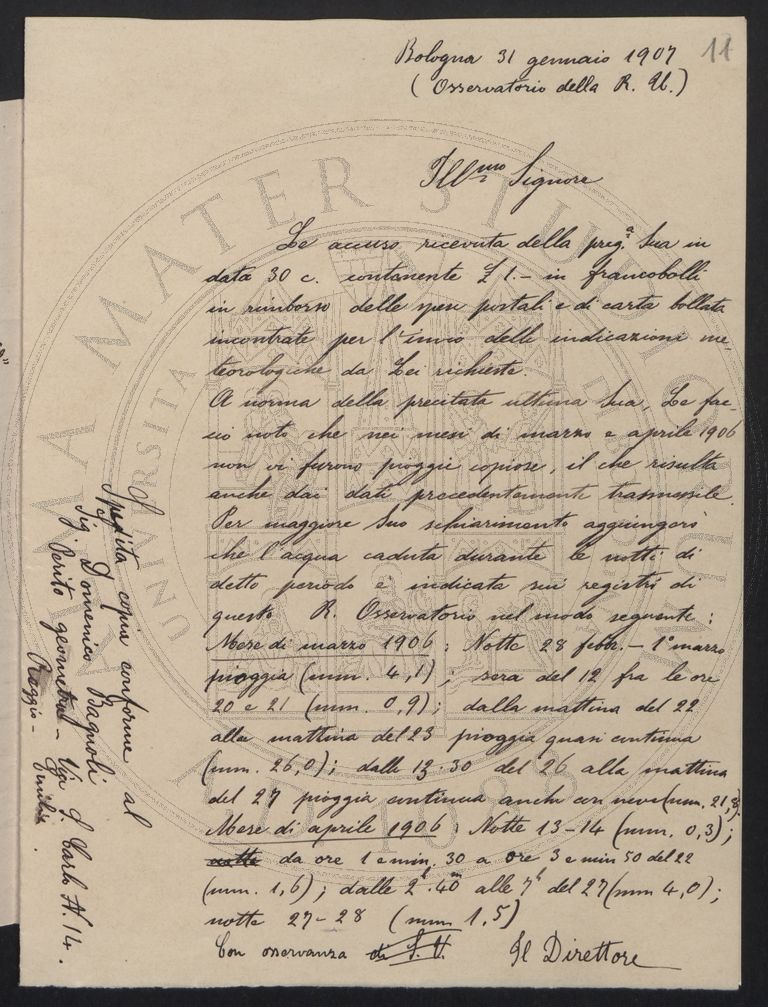 11
Bologna 31 gennaio 1907
(Osservatorio della R. U.)
Ill.mo Signore
Le accuso ricevuta della preg.a Sua in
data 30 c. contenente £ 1.- in francobolli
in rimborso delle spese postali e di carta bollata
incontrate per l'invio delle indicazioni me-
teorologiche da Lei richieste.
A norma della precitata ultima Sua, Le fac-
cio noto che nei mesi di marzo e aprile 1906
non vi furono pioggie copiose, il che risulta
anche dai dati precedentemente trasmessile.
Per maggiore Suo schiarimento aggiungerò
che l'acqua caduta durante le notti di
detto periodo è indicata sui registri di
questo R. Osservatorio nel modo seguente:
Mese di marzo 1906: Notte 28 febbr. - 1° marzo
pioggia (mm. 4,1); sera del 12 fra le ore
20 e 21 (mm. 0,9); dalla mattina del 22
alla mattina del 23 pioggia quasi continua
(mm. 26,0); dalle 13.30 del 26 alla mattina
del 27 pioggia continua anche con neve (mm. 21,8).
Mese di aprile 1906: Notte 13-14 (mm. 0,3);
notte da ore 1 e min. 30 a ore 3 e min 50 del 22
(mm. 1,6); dalle 2h.40m alle 7h del 27 (mm 4,0);
notte 27-28 (mm 1,5)
Con osservanza di S. V. Il Direttore
Spedita copia conforme al
Sig. Domenico Bagnoli
Perito geometra - Via S. Carlo N. 14.
Reggio - Emilia.
ALMA MATER STUDIORUM
UNIVERSITÀ